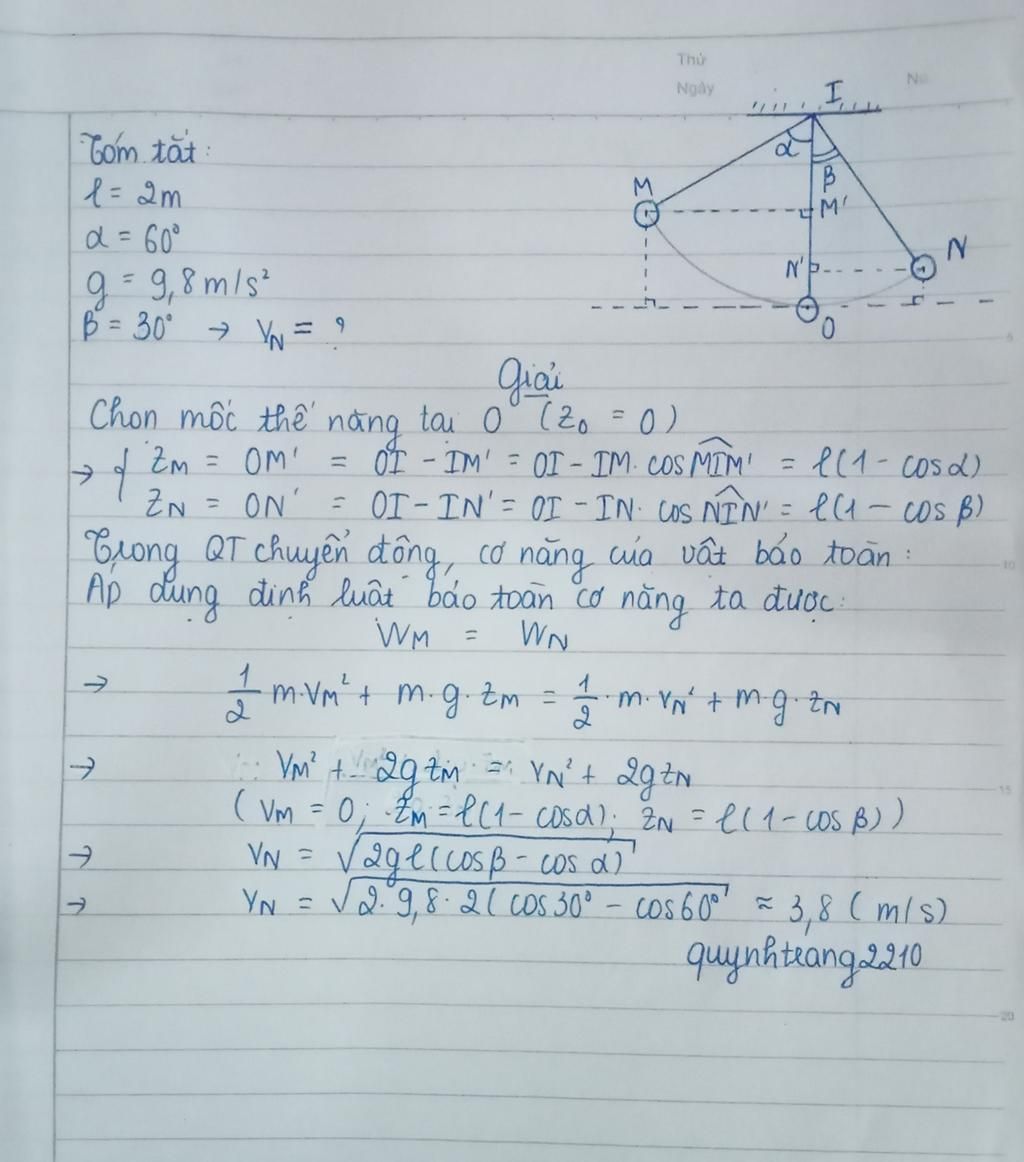 Thứ
Ngày
No.
I
α
β
M
M'
N'
N
O
Tóm tắt:
l = 2m
α = 60°
g = 9,8 m/s²
β = 30° → vN = ?
Giải
Chọn mốc thế năng tại O (z₀ = 0)
→ { zM = OM' = OI - IM' = OI - IM. cos MIM' = l(1 - cosα)
zN = ON' = OI - IN' = OI - IN. cos NIN' = l(1 - cos β)
Trong QT chuyển động, cơ năng của vật bảo toàn:
Áp dụng định luật bảo toàn cơ năng ta được:
WM = WN
→ 1/2 m.vM² + m.g.zM = 1/2.m.vN² + m.g.zN
→ vM² + 2gzM = vN² + 2gzN
(vM = 0; zM = l(1 - cosα); zN = l(1 - cos β))
→ vN = √2gl(cosβ - cos α)
→ vN = √2.9,8.2(cos30° - cos60° ≈ 3,8 (m/s)
quynhtrang2210
5
10
15
20